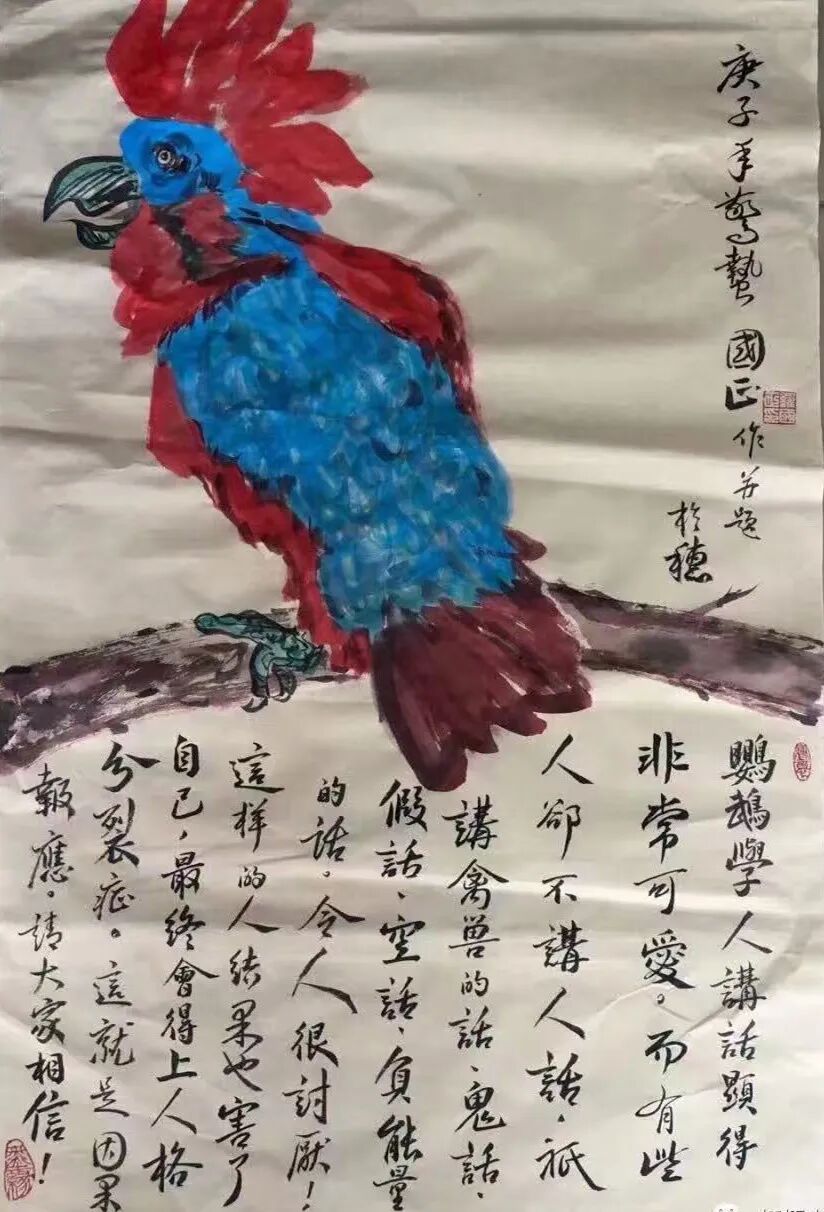 庚子年驚蟄 國正作並題
於穗
鸚鵡學人講話顯得
非常可愛。而有些
人卻不講人話，祇
講禽兽的話、鬼話、
假話、空話、負能量
的話。令人很討厭！
這样的人结果也害了
自己，最終會得上人格
分裂症。這就是因果
報應。請大家相信！